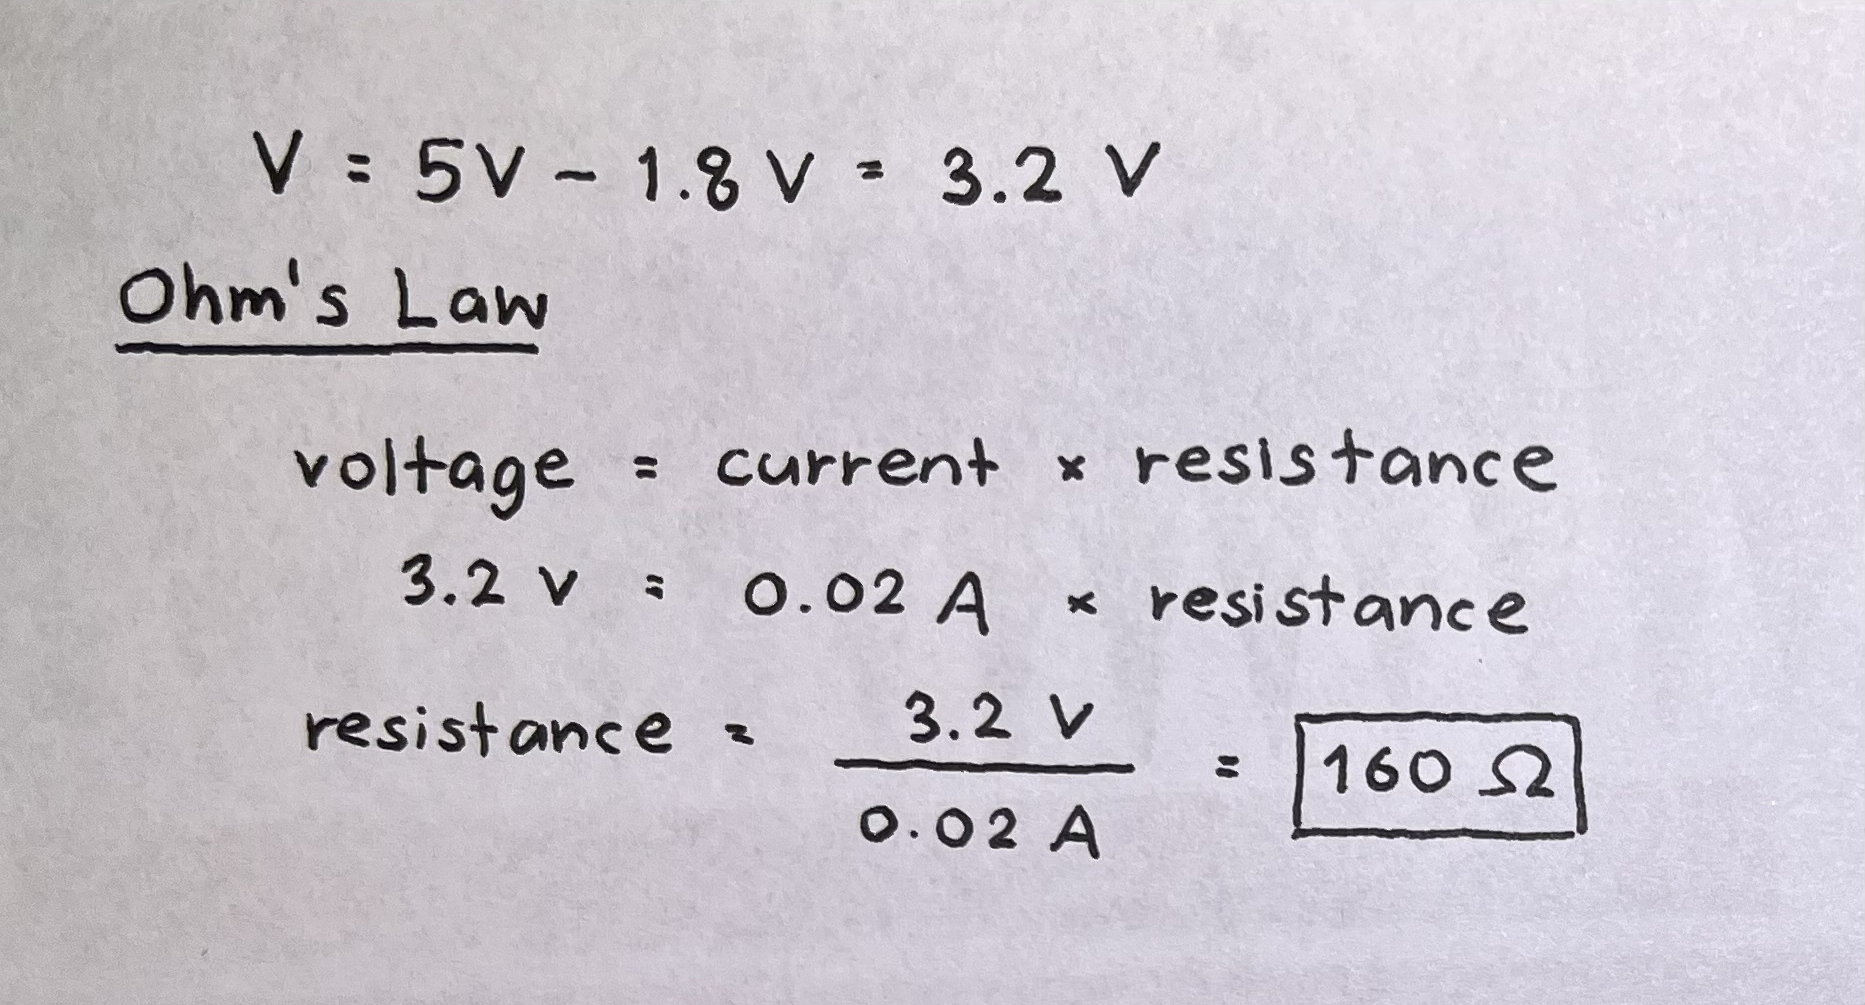 V = 5V - 1.8 V = 3.2 V
Ohm's Law
voltage = current × resistance
3.2 V = 0.02 A × resistance
resistance = 3.2 V / 0.02 A = 160 Ω